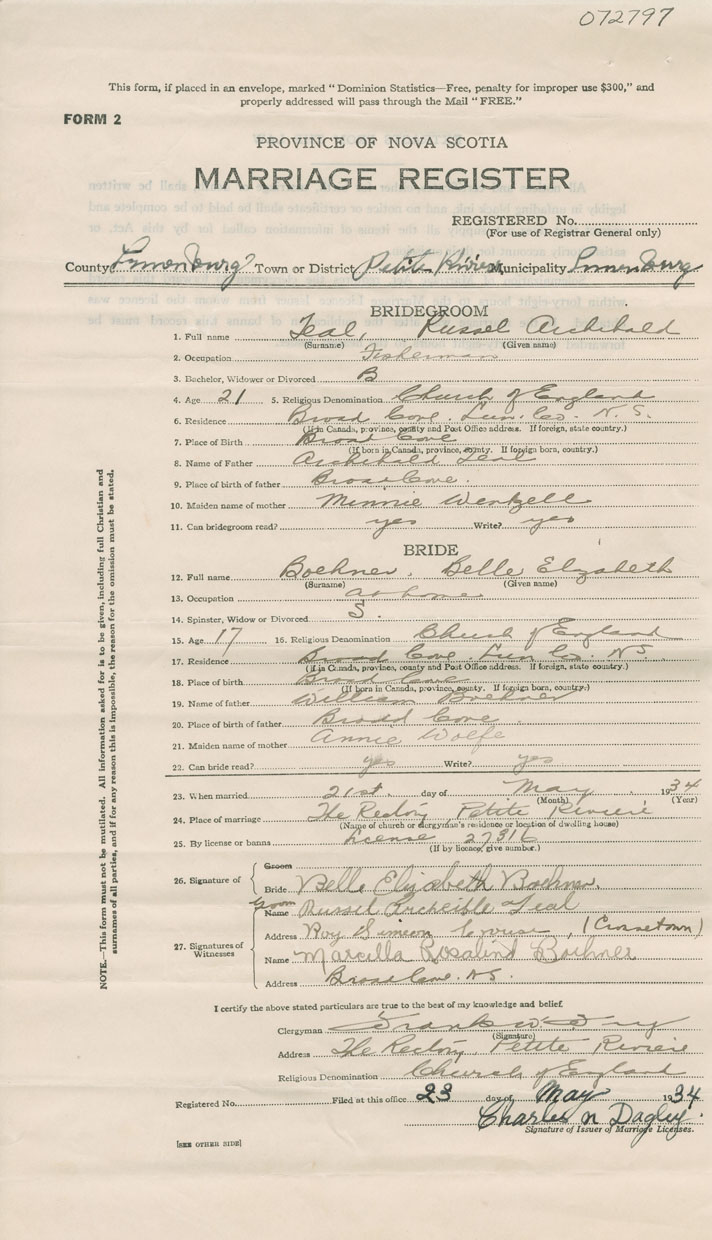 072797
This form, if placed in an envelope, marked "Dominion Statistics—Free, penalty for improper use $300," and
properly addressed will pass through the Mail "FREE."
FORM 2
PROVINCE OF NOVA SCOTIA
MARRIAGE REGISTER
REGISTERED No.
(For use of Registrar General only)
County Lunenburg Town or District Petite Riviere Municipality Lunenburg
BRIDEGROOM
1. Full name Teal, Russel Archibald
(Surname) (Given name)
2. Occupation Fisherman
3. Bachelor, Widower or Divorced B
4. Age 21 5. Religious Denomination Church of England
6. Residence Broad Cove. Lun. Co. N.S.
(If in Canada, province, county and Post Office address. If foreign, state country.)
7. Place of Birth Broad Cove
(If born in Canada, province, county. If foreign born, country.)
8. Name of Father Archibald Teal
9. Place of birth of father Broad Cove.
10. Maiden name of mother Minnie Wentzell
11. Can bridegroom read? yes Write? yes
BRIDE
12. Full name Boehner. Belle Elizabeth
(Surname) (Given name)
13. Occupation at home
14. Spinster, Widow or Divorced S.
15. Age 17 16. Religious Denomination Church of England
17. Residence Broad Cove Lun Co. NS
(If in Canada, province, county and Post Office address. If foreign, state country.)
18. Place of birth Broad Cove
(If born in Canada, province, county. If foreign born, country.)
19. Name of father William Boehner
20. Place of birth of father Broad Cove.
21. Maiden name of mother Annie Wolfe
22. Can bride read? yes Write? yes
23. When married 21st. day of May 1934
(Month) (Year)
24. Place of marriage The Rectory Petite Riviere
(Name of church or clergyman's residence or location of dwelling house)
25. By license or banns License 27316
(If by licence, give number.)
26. Signature of Groom
Bride Belle Elizabeth Boehner.
Groom
Name Russel Archeible Teal
27. Signatures of Witnesses
Address Roy Simeon (Crousetown)
Name Marcilla Rosalind Boehner
Address Broad Cove. NS.
I certify the above stated particulars are true to the best of my knowledge and belief.
Clergyman Frank W.
(Signature)
Address The Rectory, Petite Riviere
Religious Denomination Church of England
Registered No. Filed at this office 23 day of May 1934
Charles N Dagley.
Signature of Issuer of Marriage Licenses.
[SEE OTHER SIDE]
NOTE.—This form must not be mutilated. All information asked for is to be given, including full Christian and
surnames of all parties, and if for any reason this is impossible, the reason for the omission must be stated.